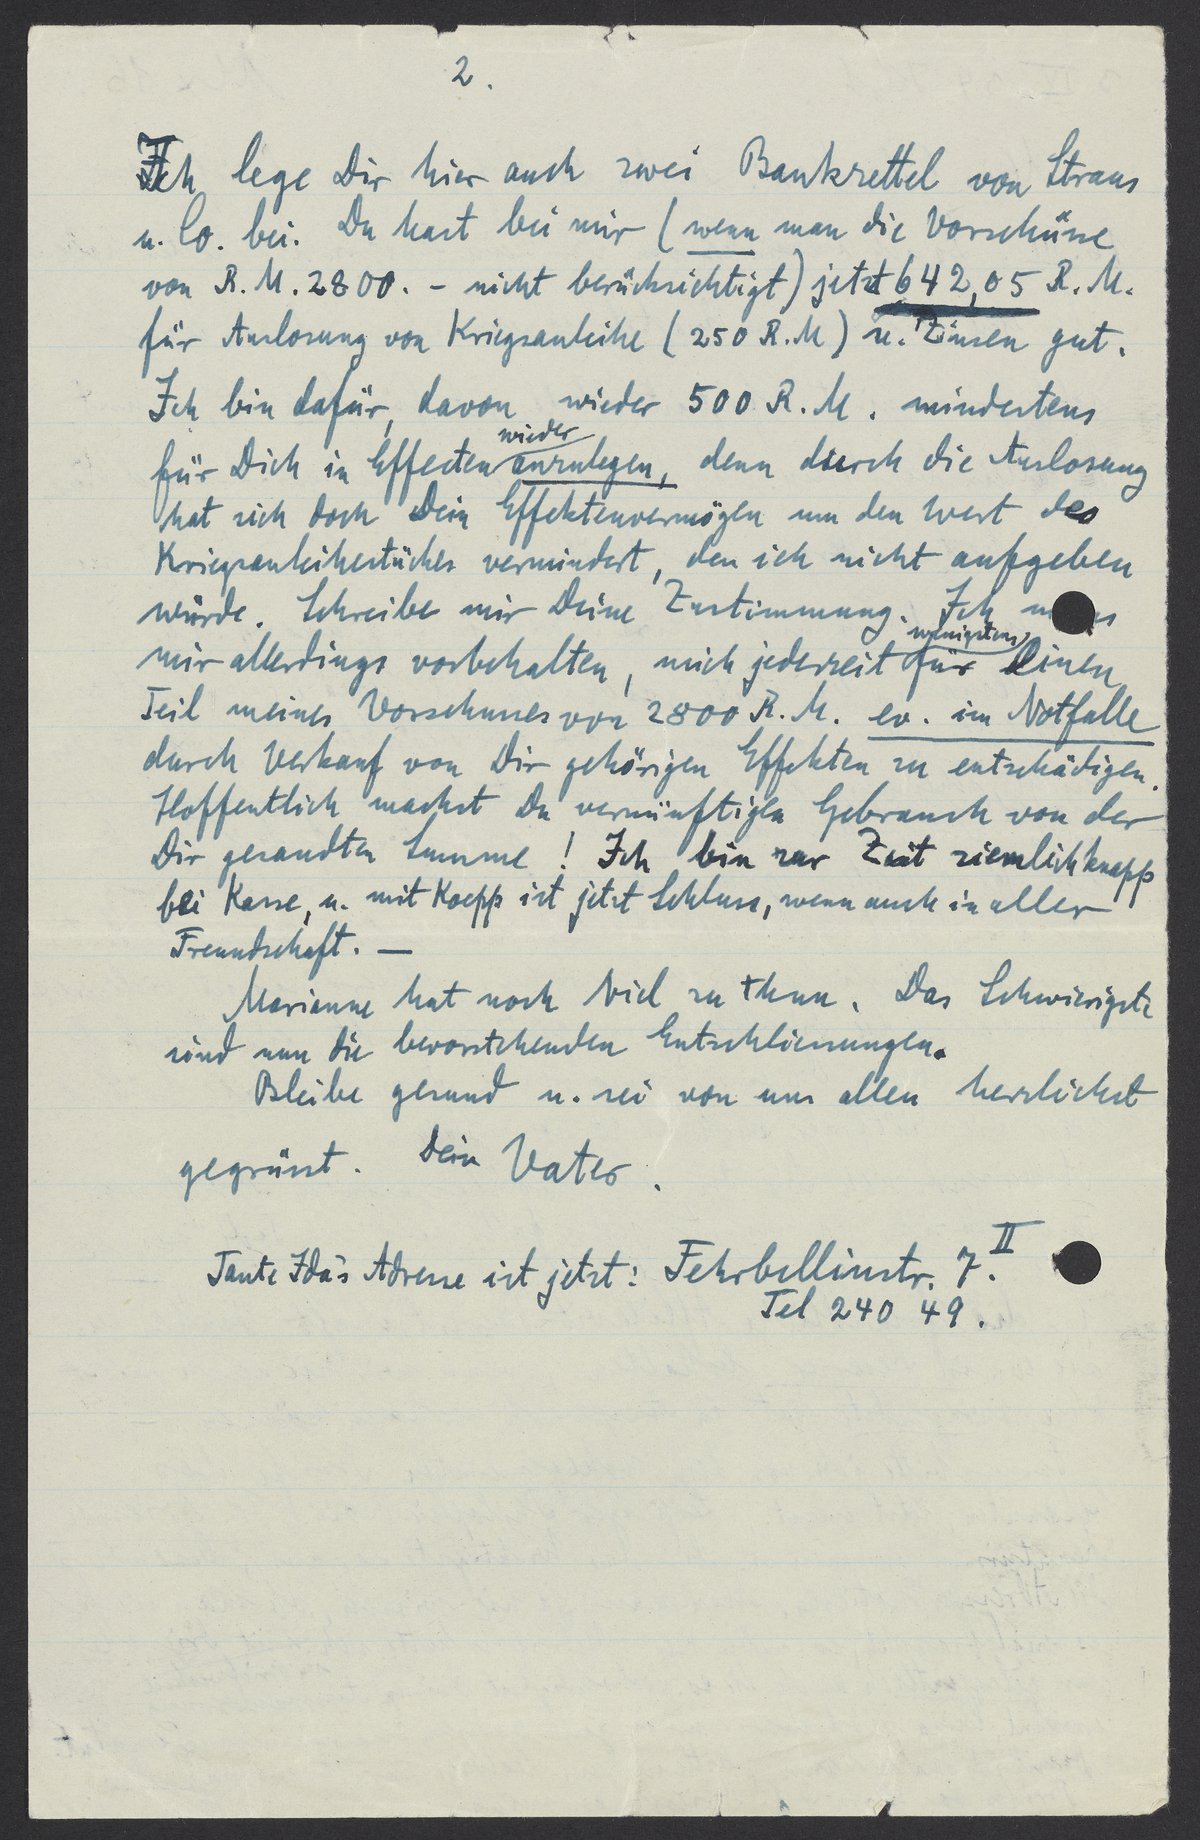 2.
Ich lege Dir hier auch zwei Bankzettel von Straus
u. Co. bei. Du hast bei mir (wenn man die Vorschüsse
von R.M. 2800.- nicht berücksichtigt) jetzt 642,05 R.M.
für Auslosung von Kriegsanleihe (250 R.M) u. Zinsen gut.
Ich bin dafür, davon wieder 500 R.M. mindestens
für Dich in Effecten wieder anzulegen, denn durch die Auslosung
hat sich doch Dein Effektenvermögen um den Wert des
Kriegsanleihestückes vermindert, den ich nicht aufgeben
würde. Schreibe mir Deine Zustimmung. Ich
mir allerdings vorbehalten, mich jederzeit wenigstens für einen
Teil meines Vorschusses von 2800 R.M. ev. im Notfalle
durch Verkauf von Dir gehörigen Effekten zu entschädigen.
Hoffentlich machst Du vernünftigen Gebrauch von der
Dir gesandten Summe! Ich bin zur Zeit ziemlich knapp
bei Kasse, u. mit Koepp ist jetzt Schluss, wenn auch in aller
Freundschaft. —
Marianne hat noch Viel zu thun. Das Schwierigste
sind nun die bevorstehenden Entschliessungen.
Bleibe gesund u. sei von uns allen herzlichst
gegrüsst. Dein Vater.
Tante Ida's Adresse ist jetzt: Fehrbellinstr. 7. II
Tel 240 49.